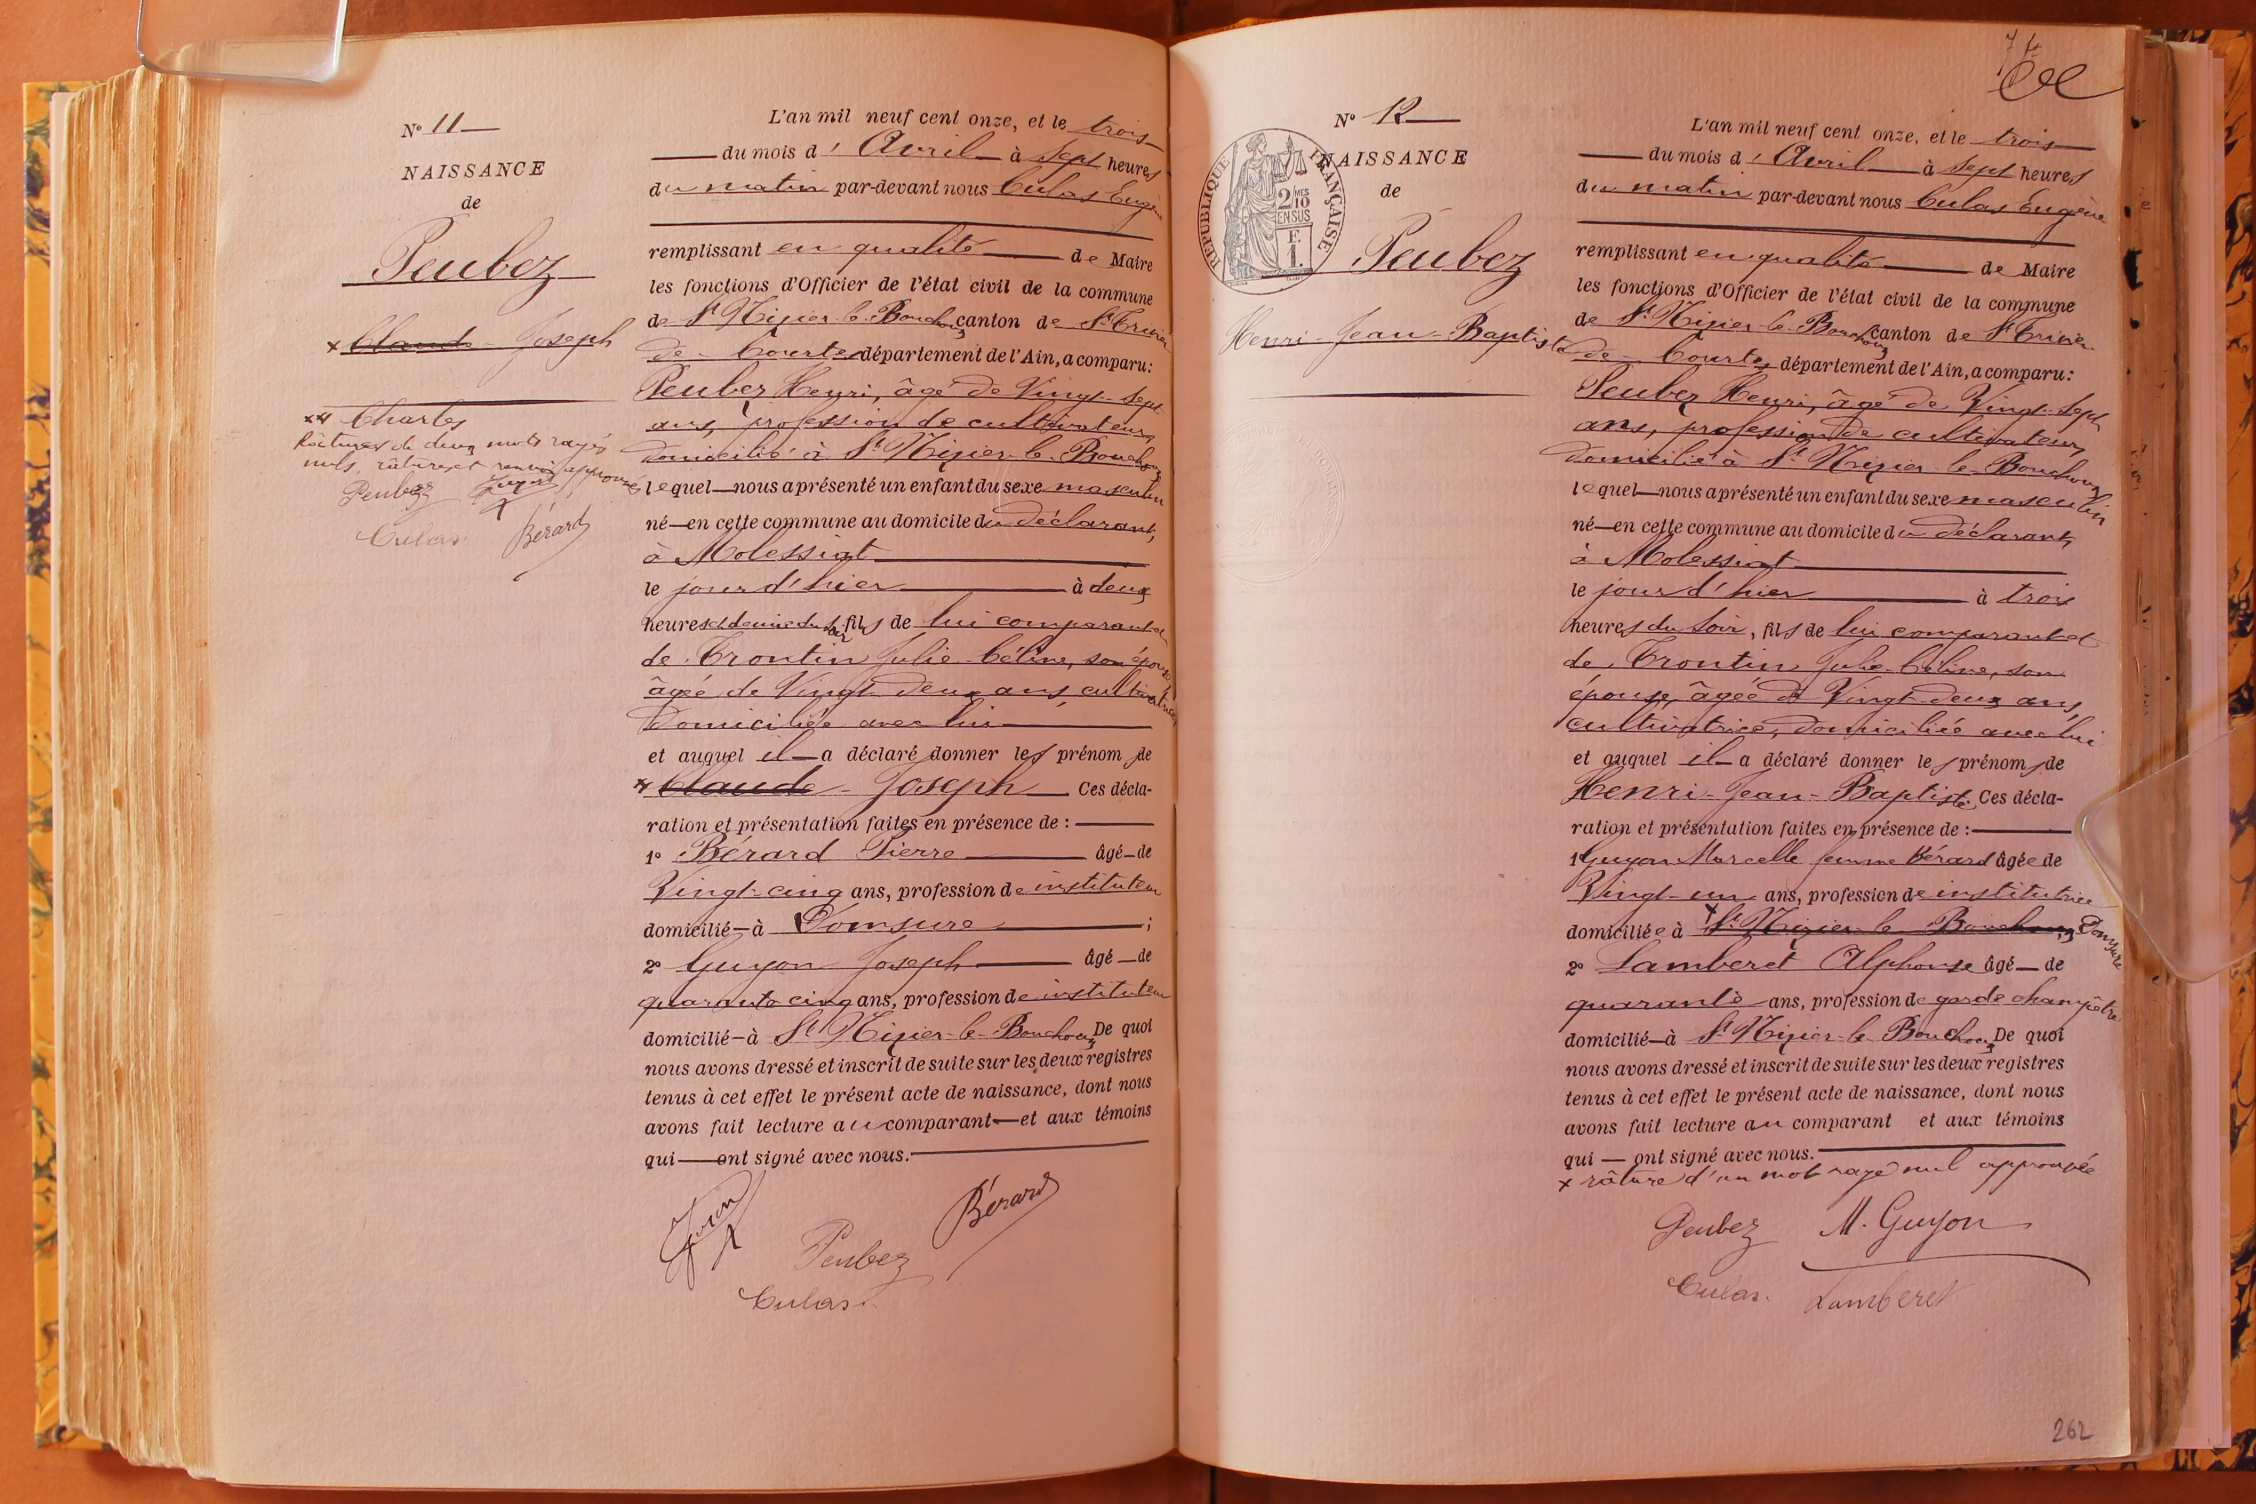 N° 11
NAISSANCE
de
Peubez
x Claude - Joseph
xx Charles
Râtures de deux mots rayés
nuls, râtures et renvoi approuvés
Peubez Guyon
Culas Bérard
L'an mil neuf cent onze, et le trois
du mois d' Avril à sept heures
du matin par-devant nous Culas Eugène
remplissant en qualité de Maire
les fonctions d'Officier de l'état civil de la commune
de St Nizier-le-Bouchoux canton de St Trivier
de - Courtes département de l'Ain, a comparu :
Peubez Henri, âgé de Vingt-sept
ans, profession de cultivateur,
domicilié à St Nizier-le-Bouchoux
lequel nous a présenté un enfant du sexe masculin
né en cette commune au domicile du déclarant,
à Molessiat
le jour d'hier à deux
heures et demie du soir fils de lui comparant et
de Trontin Julie Céline, son épouse
âgée de Vingt-deux ans, cultivatrice,
domiciliée avec lui
et auquel il a déclaré donner les prénoms de
xx Claude - Joseph Ces décla-
ration et présentation faites en présence de :
1° Bérard Pierre âgé de
Vingt-cinq ans, profession de instituteur
domicilié à Domsure ;
2° Guyon Joseph âgé de
quarante cinq ans, profession de instituteur
domicilié à St Nizier-le-Bouchoux De quoi
nous avons dressé et inscrit de suite sur les deux registres
tenus à cet effet le présent acte de naissance, dont nous
avons fait lecture au comparant et aux témoins
qui ont signé avec nous.
Guyon Bérard
Peubez
Culas
N° 12
NAISSANCE
de
RÉPUBLIQUE FRANÇAISE
2 MES
10
EN SUS
F.
1.
Peubez
Henri - Jean - Baptiste
L'an mil neuf cent onze, et le trois
du mois d' Avril à sept heures
du matin par-devant nous Culas Eugène
remplissant en qualité de Maire
les fonctions d'Officier de l'état civil de la commune
de St Nizier-le-Bouchoux canton de St Trivier
de - Courtes département de l'Ain, a comparu :
Peubez Henri, âgé de Vingt-Sept
ans, profession de cultivateur,
domicilié à St Nizier-le-Bouchoux
lequel nous a présenté un enfant du sexe masculin
né en cette commune au domicile du déclarant,
à Molessiat
le jour d'hier à trois
heures du soir, fils de lui comparant et
de Trontin Julie Céline, son
épouse, âgée de Vingt-deux ans,
cultivatrice, domiciliée avec lui
et auquel il a déclaré donner les prénoms de
Henri - Jean - Baptiste. Ces décla-
ration et présentation faites en présence de :
1° Guyon Marcelle femme Bérard âgée de
Vingt-un ans, profession de institutrice
domiciliée à x St Nizier-le-Bouchoux Domsure
2° Lamberet Alphonse âgé de
quarante ans, profession de garde champêtre
domicilié à St Nizier-le-Bouchoux De quoi
nous avons dressé et inscrit de suite sur les deux registres
tenus à cet effet le présent acte de naissance, dont nous
avons fait lecture au comparant et aux témoins
qui ont signé avec nous.
x râture d'un mot rayé nul approuvée
Peubez M. Guyon
Culas Lamberet
262